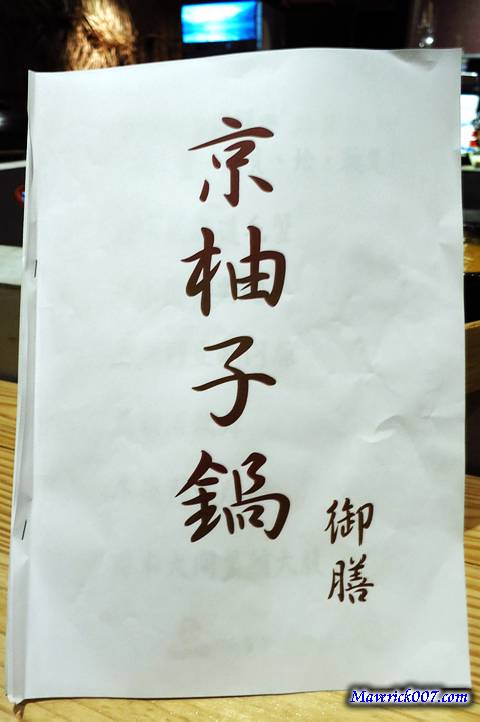 京柚子鍋
御膳
Maverick007.com